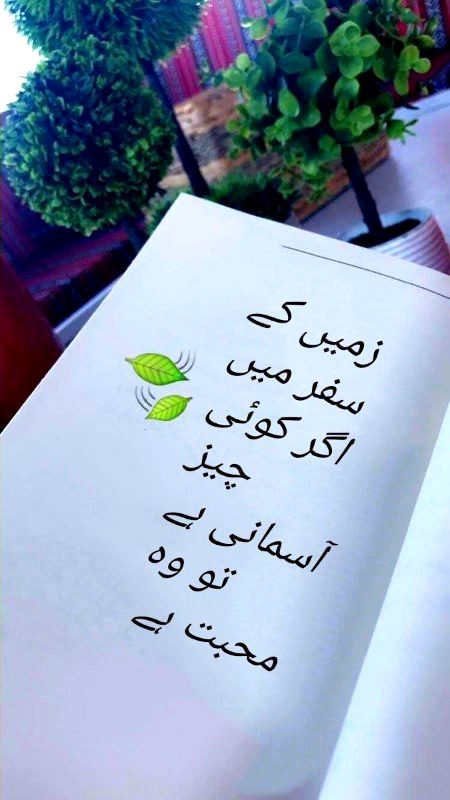 زمیں کے
سفر میں
اگر کوئی
چیز
آسمانی ہے
تو وہ
محبت ہے